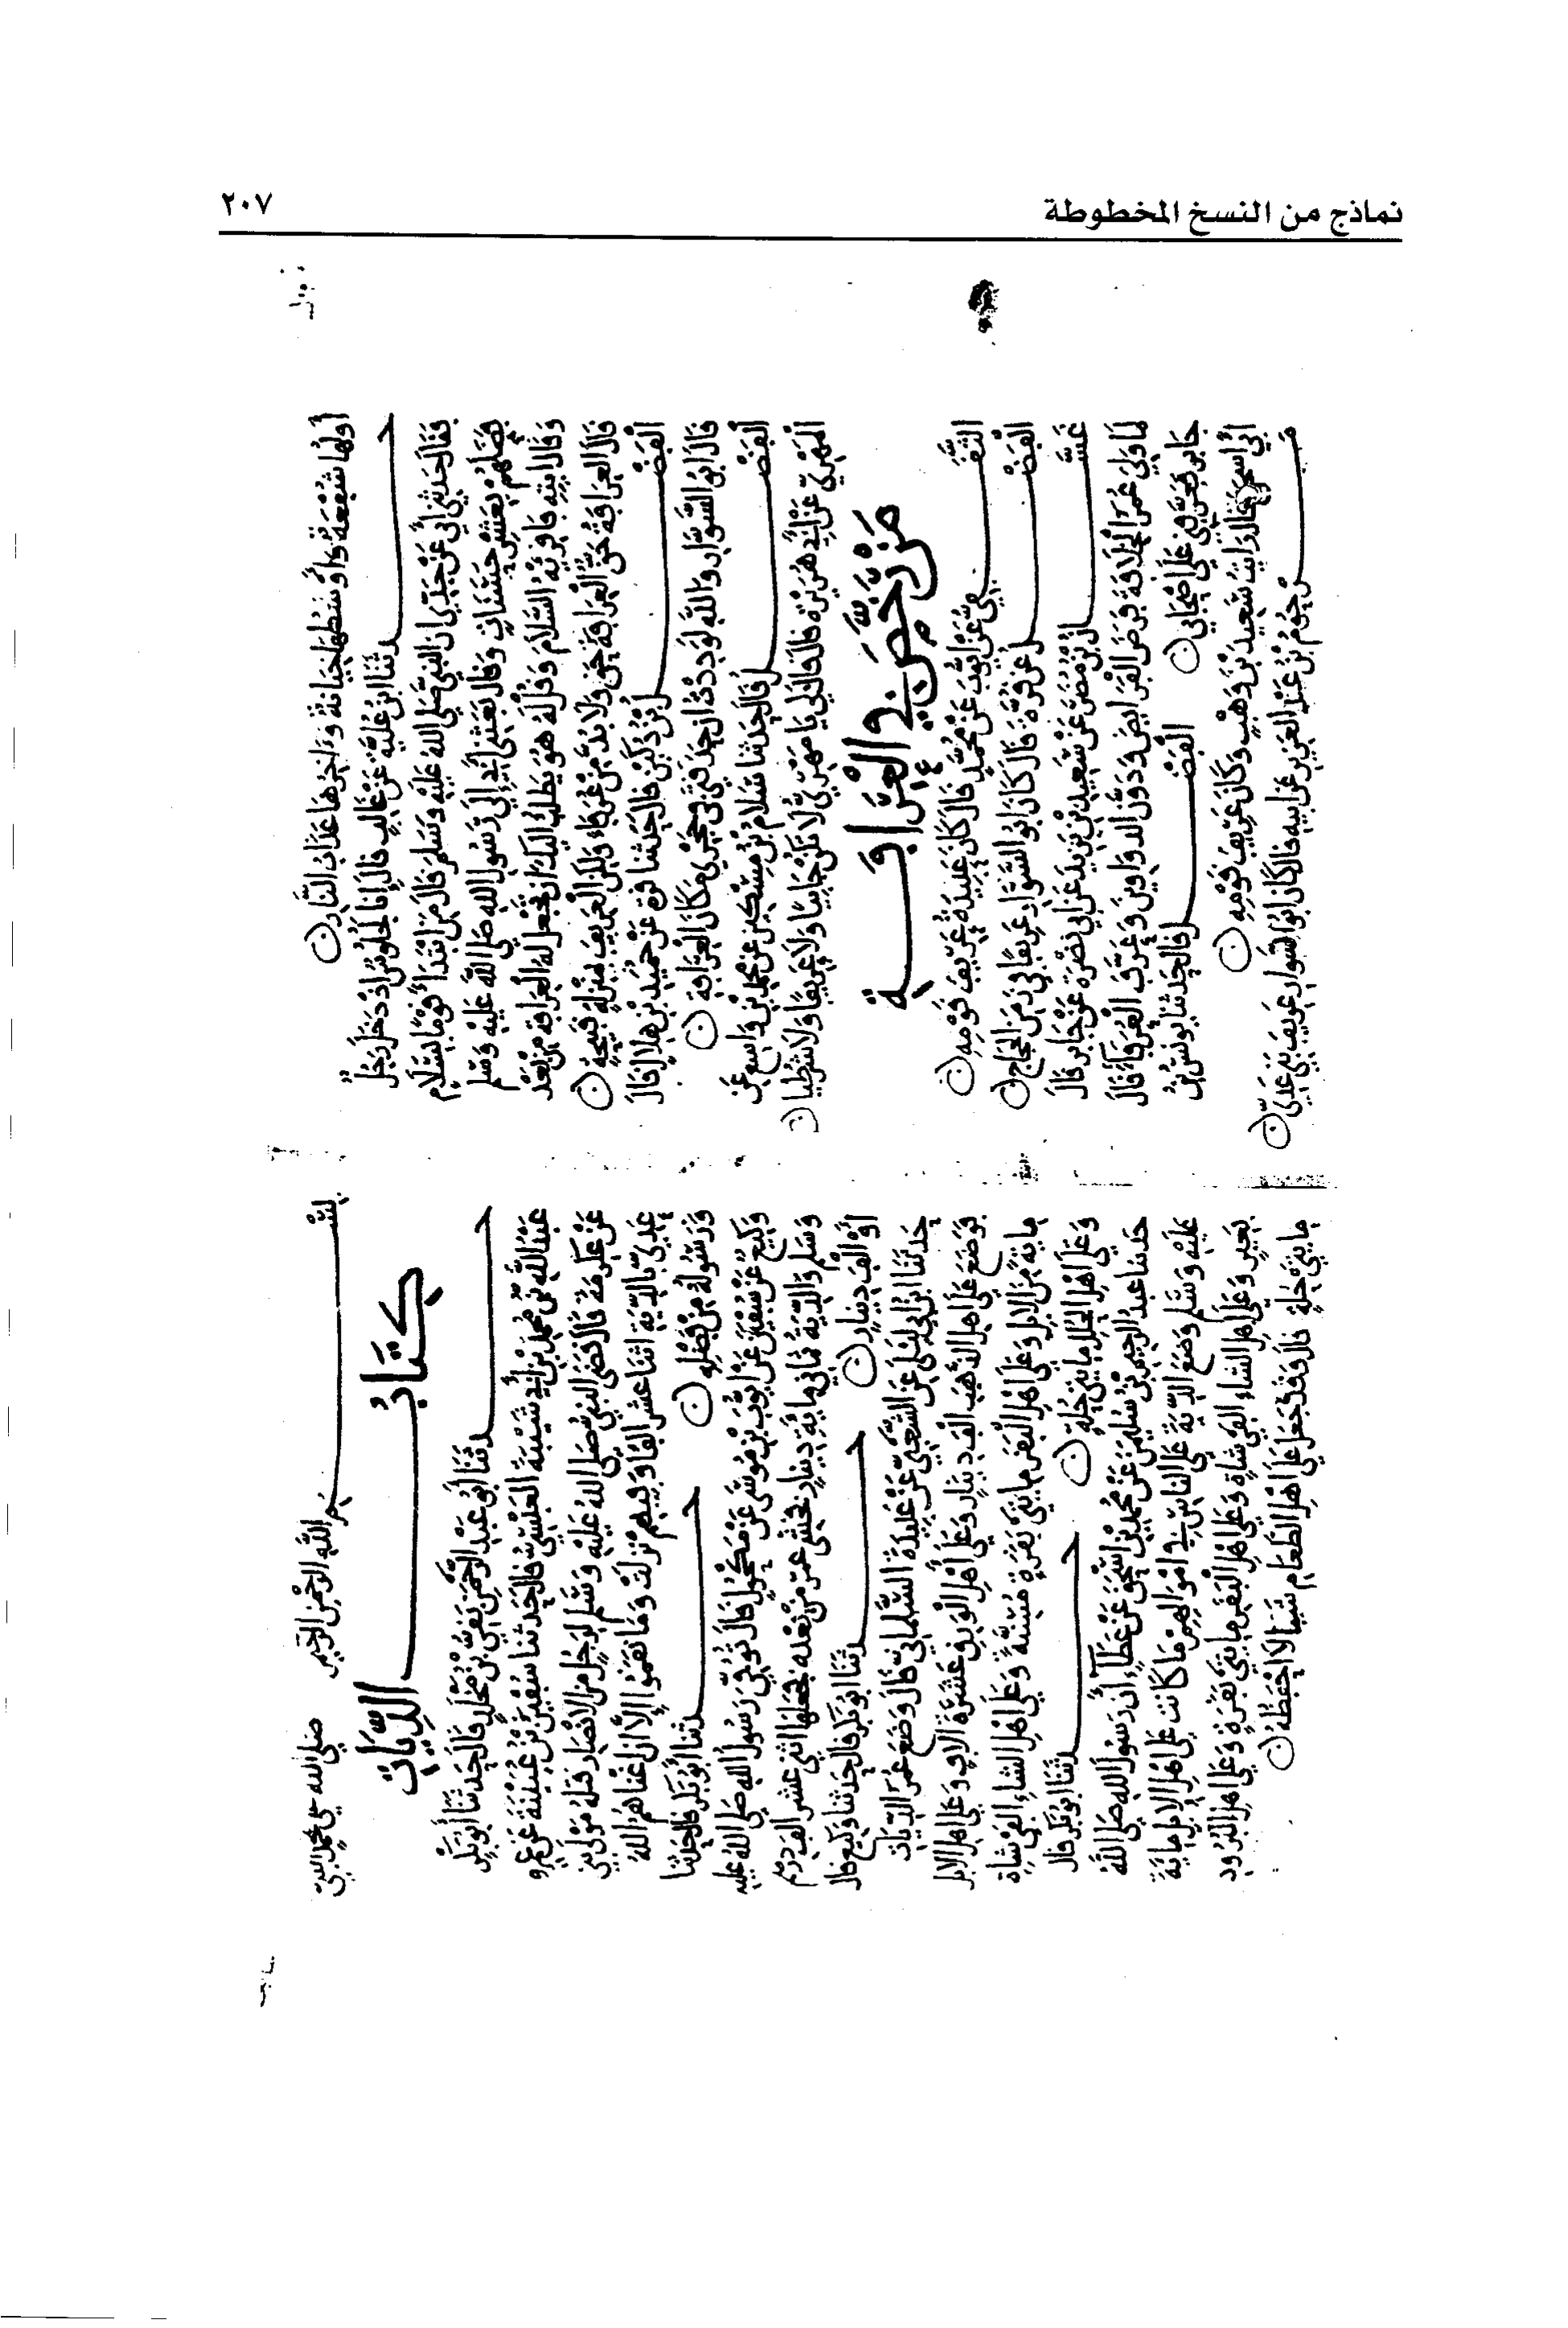 نماذج من النسخ المخطوطة
٢٠٧
أولها شفعة وأوسطها خيانة وآخرها عذاب النار
حدثنا ابن علية عن غالب قال إنا لجلوس إذ دخل رجل
فقال حدثني أبي عن جدي أن النبي صلى الله عليه وسلم قال من ابتدأ قوما بسلام
فضلهم بعشر حسنات وقال بعثني أبي إلى رسول الله صلى الله عليه وسلم
وقال ايته فاقريه السلام وقل له هو يطلب إليك أن تجعل له العرافة من بعد
قال العرافة حق العرافة حق ولا بد من عرفاء ولكن العريف بمنزلة قبيحة
الفضل بن دكين قال حدثنا قرة عن حميد بن هلال قال
قال أبو السوار والله لوددت أن حدقتي في حجري مكان العرافة
الفضل قال حدثنا سلام بن مسكين عن محمد بن واسع عن
المهري عن أبي هريرة قال قال لي يا مهري لا تكن جابيا ولا عريفا ولا شرطيا
من رخص في العرافة
الثقفي عن أيوب عن محمد قال كان عبيدة عريف قومه
الفضل عن قرة قال كان أبو السوار عريفا في زمن الحجاج
غسان بن مضر عن سعيد بن يزيد عن أبي نضرة عن جابر قال
لما ولي عمر الخلافة فرض الفرايض ودون الدواوين وعرف العرفاء قال
جابر فعرفني على أصحابي الفضل قال حدثنا يونس بن
أبي إسحق قال رايت سعيد بن وهب وكان عريف قومه
مرحوم بن عبد العزيز عن أبيه قال كان أبو السوار عريف بني عدي
بسم الله الرحمن الرحيم صلى الله على محمد النبي
كتاب الديات
حدثنا أبو عبد الرحمن بقي بن مخلد قال حدثنا أبو بكر
عبد الله بن محمد بن أبي شيبة العبسي قال حدثنا سفين بن عيينة عن عمرو
عن عكرمة قال قضى النبي صلى الله عليه وسلم لرجل من الأنصار قتله مولى بني
عدي بالدية اثنا عشر ألفا وفيهم نزلت وما نقموا إلا أن أغناهم الله
ورسوله من فضله حدثنا أبو بكر قال حدثنا
وكيع عن سفين عن أيوب بن موسى عن مكحول قال توفي رسول الله صلى الله عليه
وسلم والدية ثماني ماية دينار فخشي عمر من بعده فجعلها اثني عشر الف درهم
أو ألف دينار حدثنا أبو بكر قال حدثنا وكيع قال
حدثنا ابن أبي ليلى عن الشعبي عن عبيدة السلماني قال وضع عمر الديات
فوضع على أهل الذهب ألف دينار وعلى أهل الورق عشرة الاف وعلى أهل الابل
ماية من الابل وعلى أهل البقر مايتي بقرة مسنة وعلى أهل الشاء الفي شاة
وعلى أهل الحلل مايتي حلة حدثنا أبو بكر قال
حدثنا عبد الرحيم بن سليمن عن محمد بن إسحق عن عطاء أن رسول الله صلى الله
عليه وسلم وضع الدية على الناس في أموالهم ما كانت على أهل الابل ماية
بعير وعلى أهل الشاء الفي شاة وعلى أهل البقر مايتي بقرة وعلى أهل البرود
مايتي حلة قال وقد جعل على أهل الطعام شيئا لا أحفظه